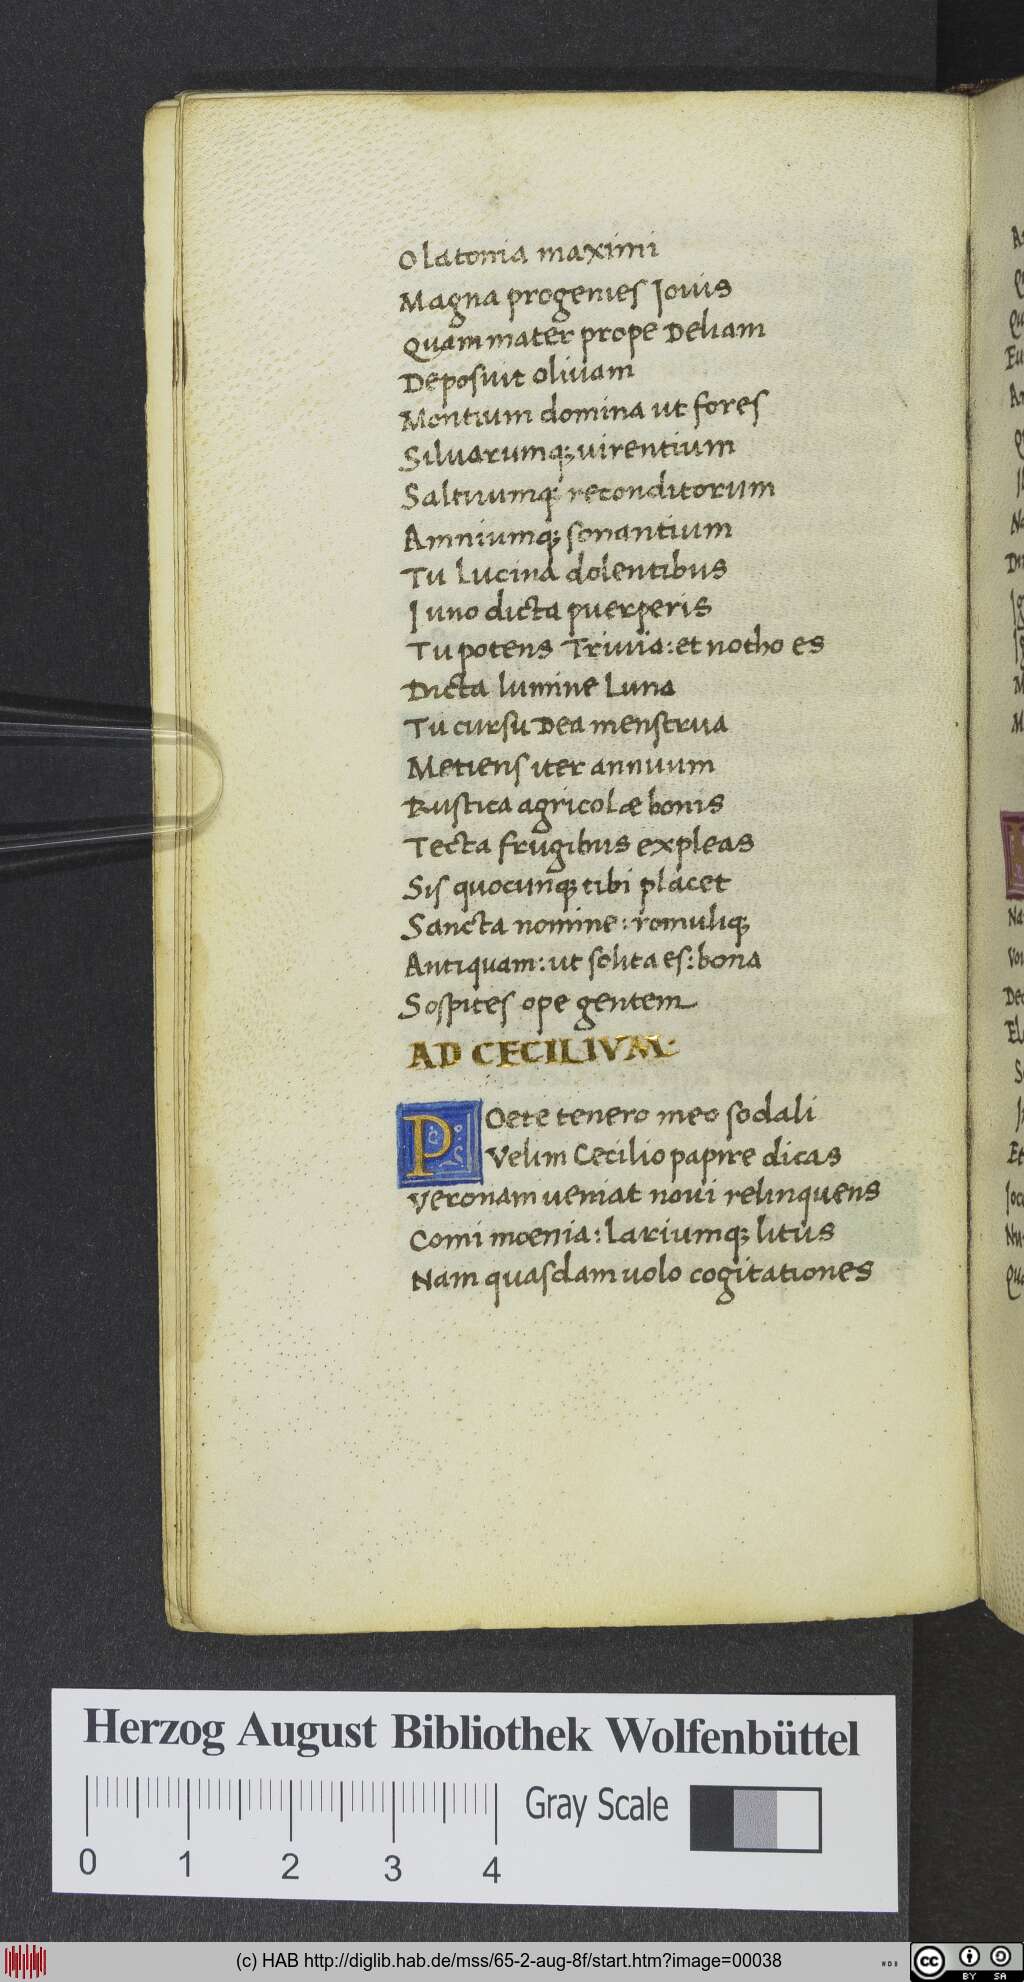 O latonia maximi
Magna progenies Jovis
Quam mater prope Deliam
Deposuit olivam
Montium domina ut fores
Silvarumq; virentium
Saltuumq; reconditorum
Amniumq; sonantium
Tu Lucina dolentibus
Juno dicta puerperis
Tu potens Trivia: et notho es
Dicta lumine Luna
Tu cursu Dea menstrua
Metiens iter annuum
Rustica agricolæ bonis
Tecta frugibus expleas
Sis quocunq; tibi placet
Sancta nomine: romuliq;
Antiquam: ut solita es: bona
Sospites ope gentem
AD CECILIVM.
POete tenero meo sodali
Velim Cecilio papire dicas
Veronam veniat novi relinquens
Comi mœnia: Lariumq; litus
Nam quasdam volo cogitationes
Herzog August Bibliothek Wolfenbüttel
0 1 2 3 4
Gray Scale
(c) HAB http://diglib.hab.de/mss/65-2-aug-8f/start.htm?image=00038
cc BY SA